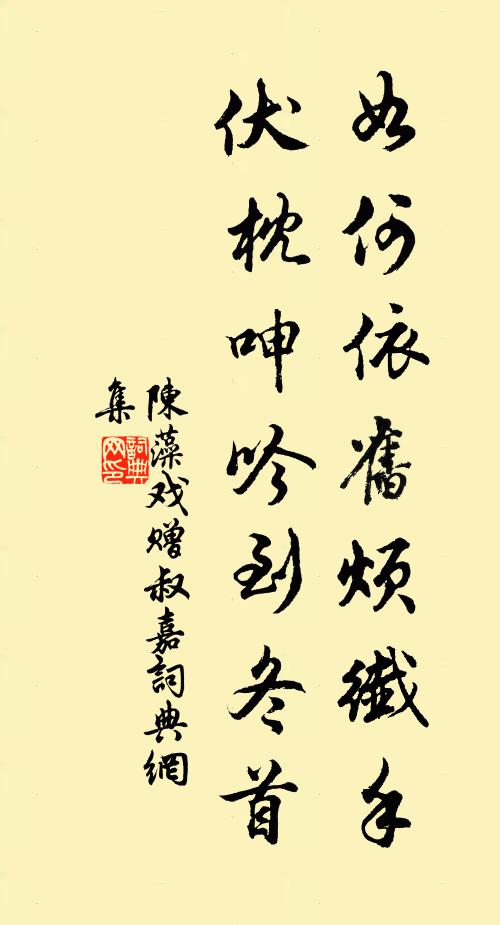 如何依舊煩纖手
伏枕呻吟到冬首
陳藻戏赠叔嘉詞典網
集
詞典网印